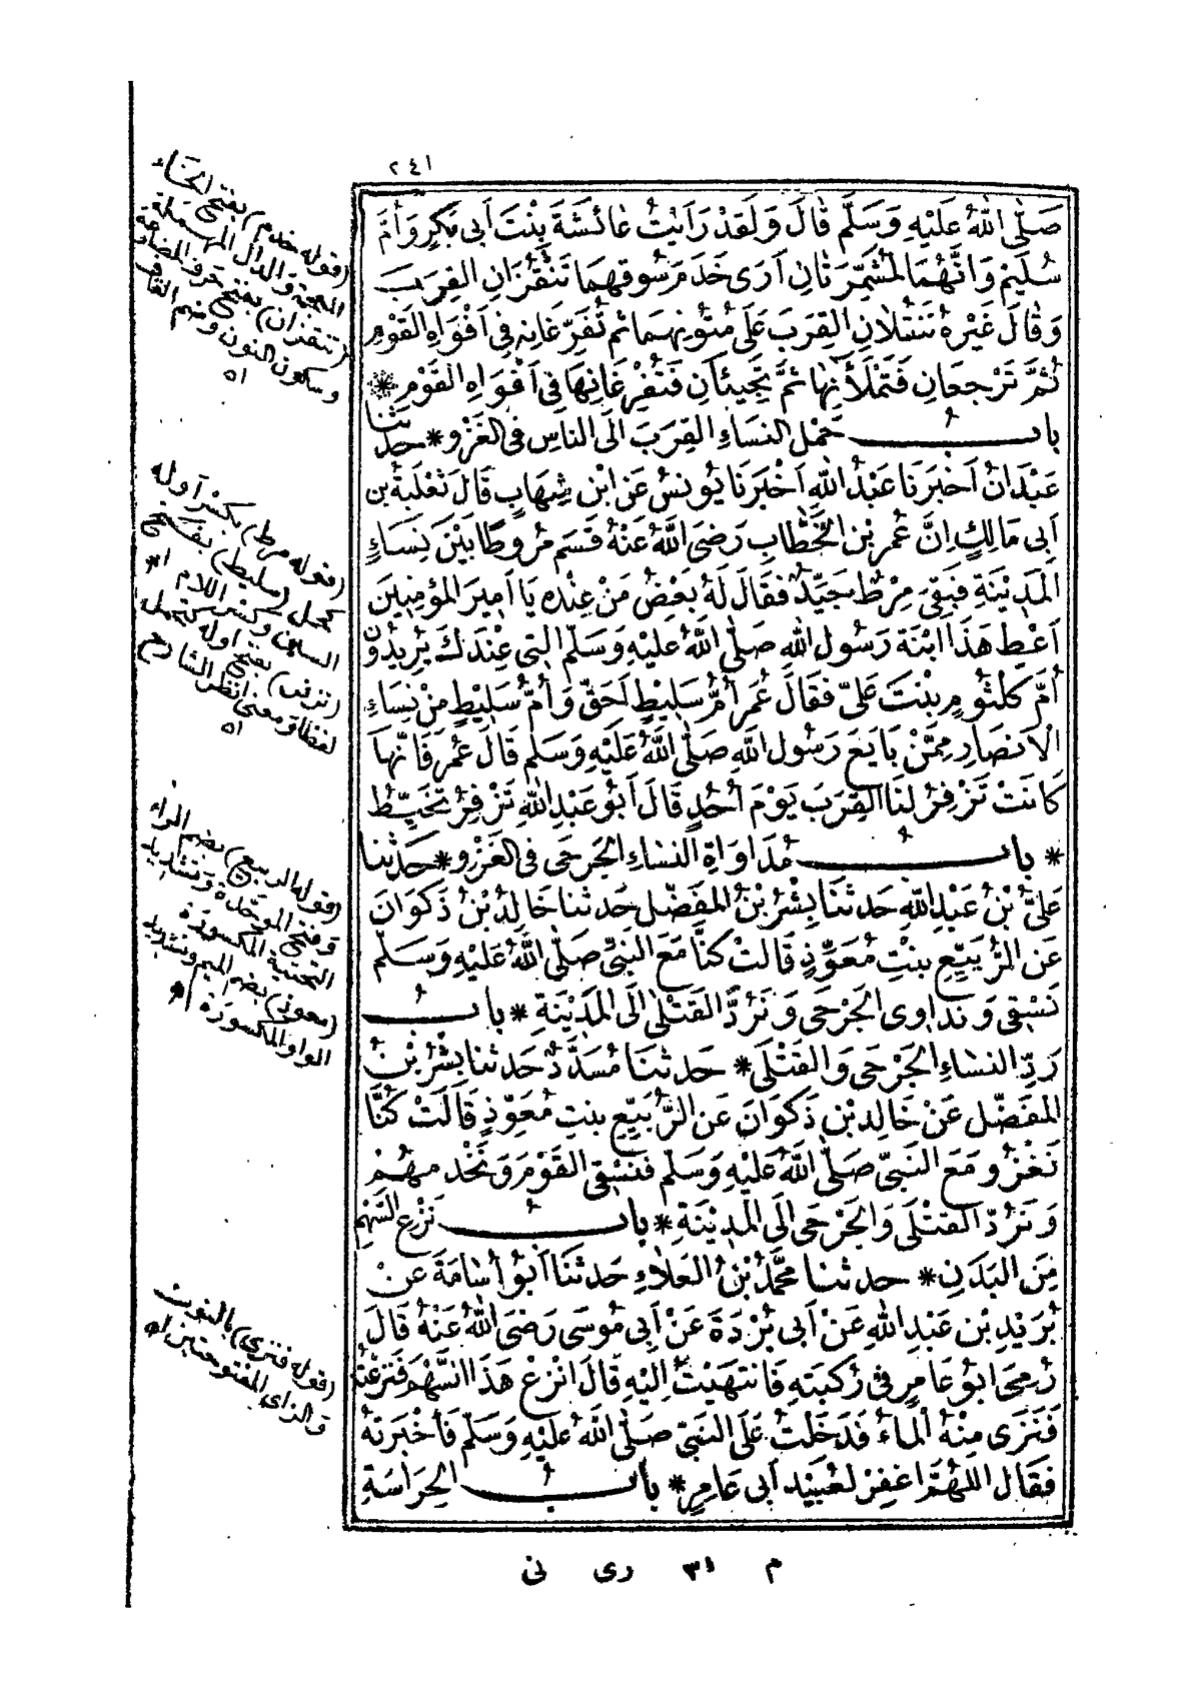 ٢٤١
صَلَّى اللهُ عَلَيْهِ وَسَلَّمَ قَالَ وَلَقَدْ رَاَيْتُ عَائشَةَ بِنْتَ اَبى بَكرٍ وَاُمَّ
سُلَيْمٍ وَاِنَّهُمَا لمُشَمِّرَتَانِ اَرَى خَدَمَ سُوقِهِمَا تَنْقُزَانِ القِرَبَ
وَقَالَ غَيْرُهُ تَنْقُلَانِ القِرَبَ عَلَى مُتُونِهمَا ثم تُفْرِغَانِهِ فى اَفْوَاهِ القَوْمِ
ثُمَّ تَرْجِعَانِ فَتَمْلَأنِهَا ثمَّ تَجِيئَآنِ فَتُفْرِغَانِهَا فى اَفْوَاهِ القَوْمِ *
بابُ حَمْلِ النسَاءِ القِرَبَ الَى الناسِ فى الغَزْو * حَدثنا
عَبْدَانُ اَخبَرَنَا عَبْدُ اللهِ اَخْبَرَنَا يُونُسُ عَنِ ابْنِ شِهَابٍ قَالَ ثَعْلَبَةُ بن
اَبى مَالِكٍ اِنَّ عُمَرَ بْنَ الخَطَّابِ رَضىَ اللهُ عَنْهُ قَسَمَ مُرُوطًا بَيْنَ نِسَاءِ
المَدِينَةِ فَبَقِىَ مِرْطٌ جَيِّدٌ فقَالَ لَهُ بَعْضُ مَنْ عِنْدَه يَا اَمِيرَ المؤمِنِينَ
اَعْطِ هَذَا ابْنَةَ رَسُولِ اللهِ صَلَّى اللهُ عَليْهِ وَسَلَّمَ التِى عِنْدَكَ يُرِيدُونَ
اُمَّ كُلْثُومٍ بِنْتَ عَلىٍّ فقَالَ عُمَرُ اُمُّ سَلِيطٍ اَحَقُّ وَاُمُّ سَلِيطٍ مِنْ نِسَاءِ
الاَنصَارِ مِمَّنْ بَايَعَ رَسُولَ اللهِ صَلَّى اللهُ عَلَيْهِ وَسَلَّمَ قَالَ عُمَرُ فَاِنَّهَا
كَانَتْ تَزْفِرُ لنَا القِرَبَ يَوْمَ اُحُدٍ قَالَ اَبُو عَبْدِ اللهِ تَزْفِرُ تَخِيطُ
* بابُ مُدَاوَاةِ النسَاءِ الجَرحَى فى الغَزْو * حَدثنا
عَلىُّ بْنُ عَبْدِ اللهِ حَدثنَا بِشْرُ بْنُ المفَضَّلِ حَدثنا خَالِدُ بْنُ ذَكوَانَ
عَنِ الرُّبَيِّعِ بنتِ مُعَوِّذٍ قَالتْ كنَّا مَعَ النبىِّ صَلَّى اللهُ عَلَيْهِ وَسَلَّمَ
نَسْقِى وَنُدَاوِى الجَرْحَى وَنَرُدُّ القَتْلَى الَى المَدِيْنَةِ * بابُ
رَدِّ النسَاءِ الجَرْحَى وَالقَتْلَى * حَدثنَا مُسَدَّدٌ حَدثنا بِشْرُ بْنُ
المفَضَّلِ عَنْ خَالِد بْنِ ذَكوَانَ عَنِ الرُّبَيِّعِ بنتِ مُعَوِّذٍ قَالَتْ كُنَّا
نَغْزُو مَعَ النَبىِّ صَلَّى اللهُ عَلَيْهِ وَسَلَّمَ فَنَسْقِى القَوْمَ وَنَخْدِمُهُمْ
وَنَرُدُّ القَتْلَى وَالجَرْحَى الَى المَدِيْنَةِ * بابُ نَزْعِ السَّهْمِ
مِنَ البَدَنِ * حدثنا مُحَمَّدُ بْنُ العَلاَءِ حَدثنَا اَبُو اُسَامَةَ عَنْ
بُرَيْدِ بْنِ عَبْدِ اللهِ عَنْ اَبى بُرْدَةَ عَنْ اَبى مُوسَى رَضىَ اللهُ عَنْهُ قَالَ
رُمِىَ ابُو عَامِرٍ فى رُكبَتِهِ فَانتَهَيْتُ اِلَيْهِ قَالَ انْزِعْ هَذَا السَّهْمَ فَنَزَعْتُهُ
فَنَزَى مِنْهُ اْلمَاءُ فَدَخَلتُ عَلَى النَبىِّ صَلَّى اللهُ عَلَيْهِ وَسَلَّمَ فَأَخْبَرتهُ
فقَالَ اللهُمَّ اغفِرْ لعُبَيْد اَبى عَامِرٍ * بابُ الحِرَاسَةِ
(قوله خدم) بفتح الخاء
المعجمة والدال المهملة
(تنقزان) بفتح حرف المضارعة
وسكون النون وضم القاف
اه
(قوله مرط) بكسر اوله
(سليط) بفتح
السين وكسر اللام اه
(تزفر) بفتح اوله كتحمل
لفظا ومعنى انظر الشارح
اه
(قوله الربيع) بضم الراء
وفتح الموحدة وتشديد
التحتية المكسورة
(معوذ) بضم الميم وتشديد
الواو المكسورة اه
(قوله فنزى) بالنون
والزاى المفتوحتين اه
م ٣١ رى نى